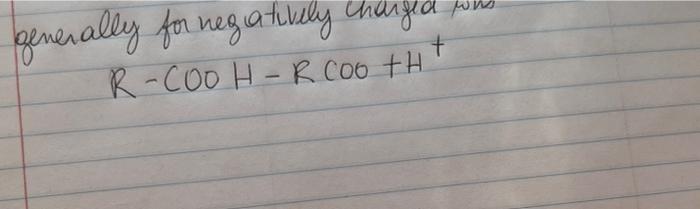 generally for negatively charged ions
R-COOH - RCOO + H+